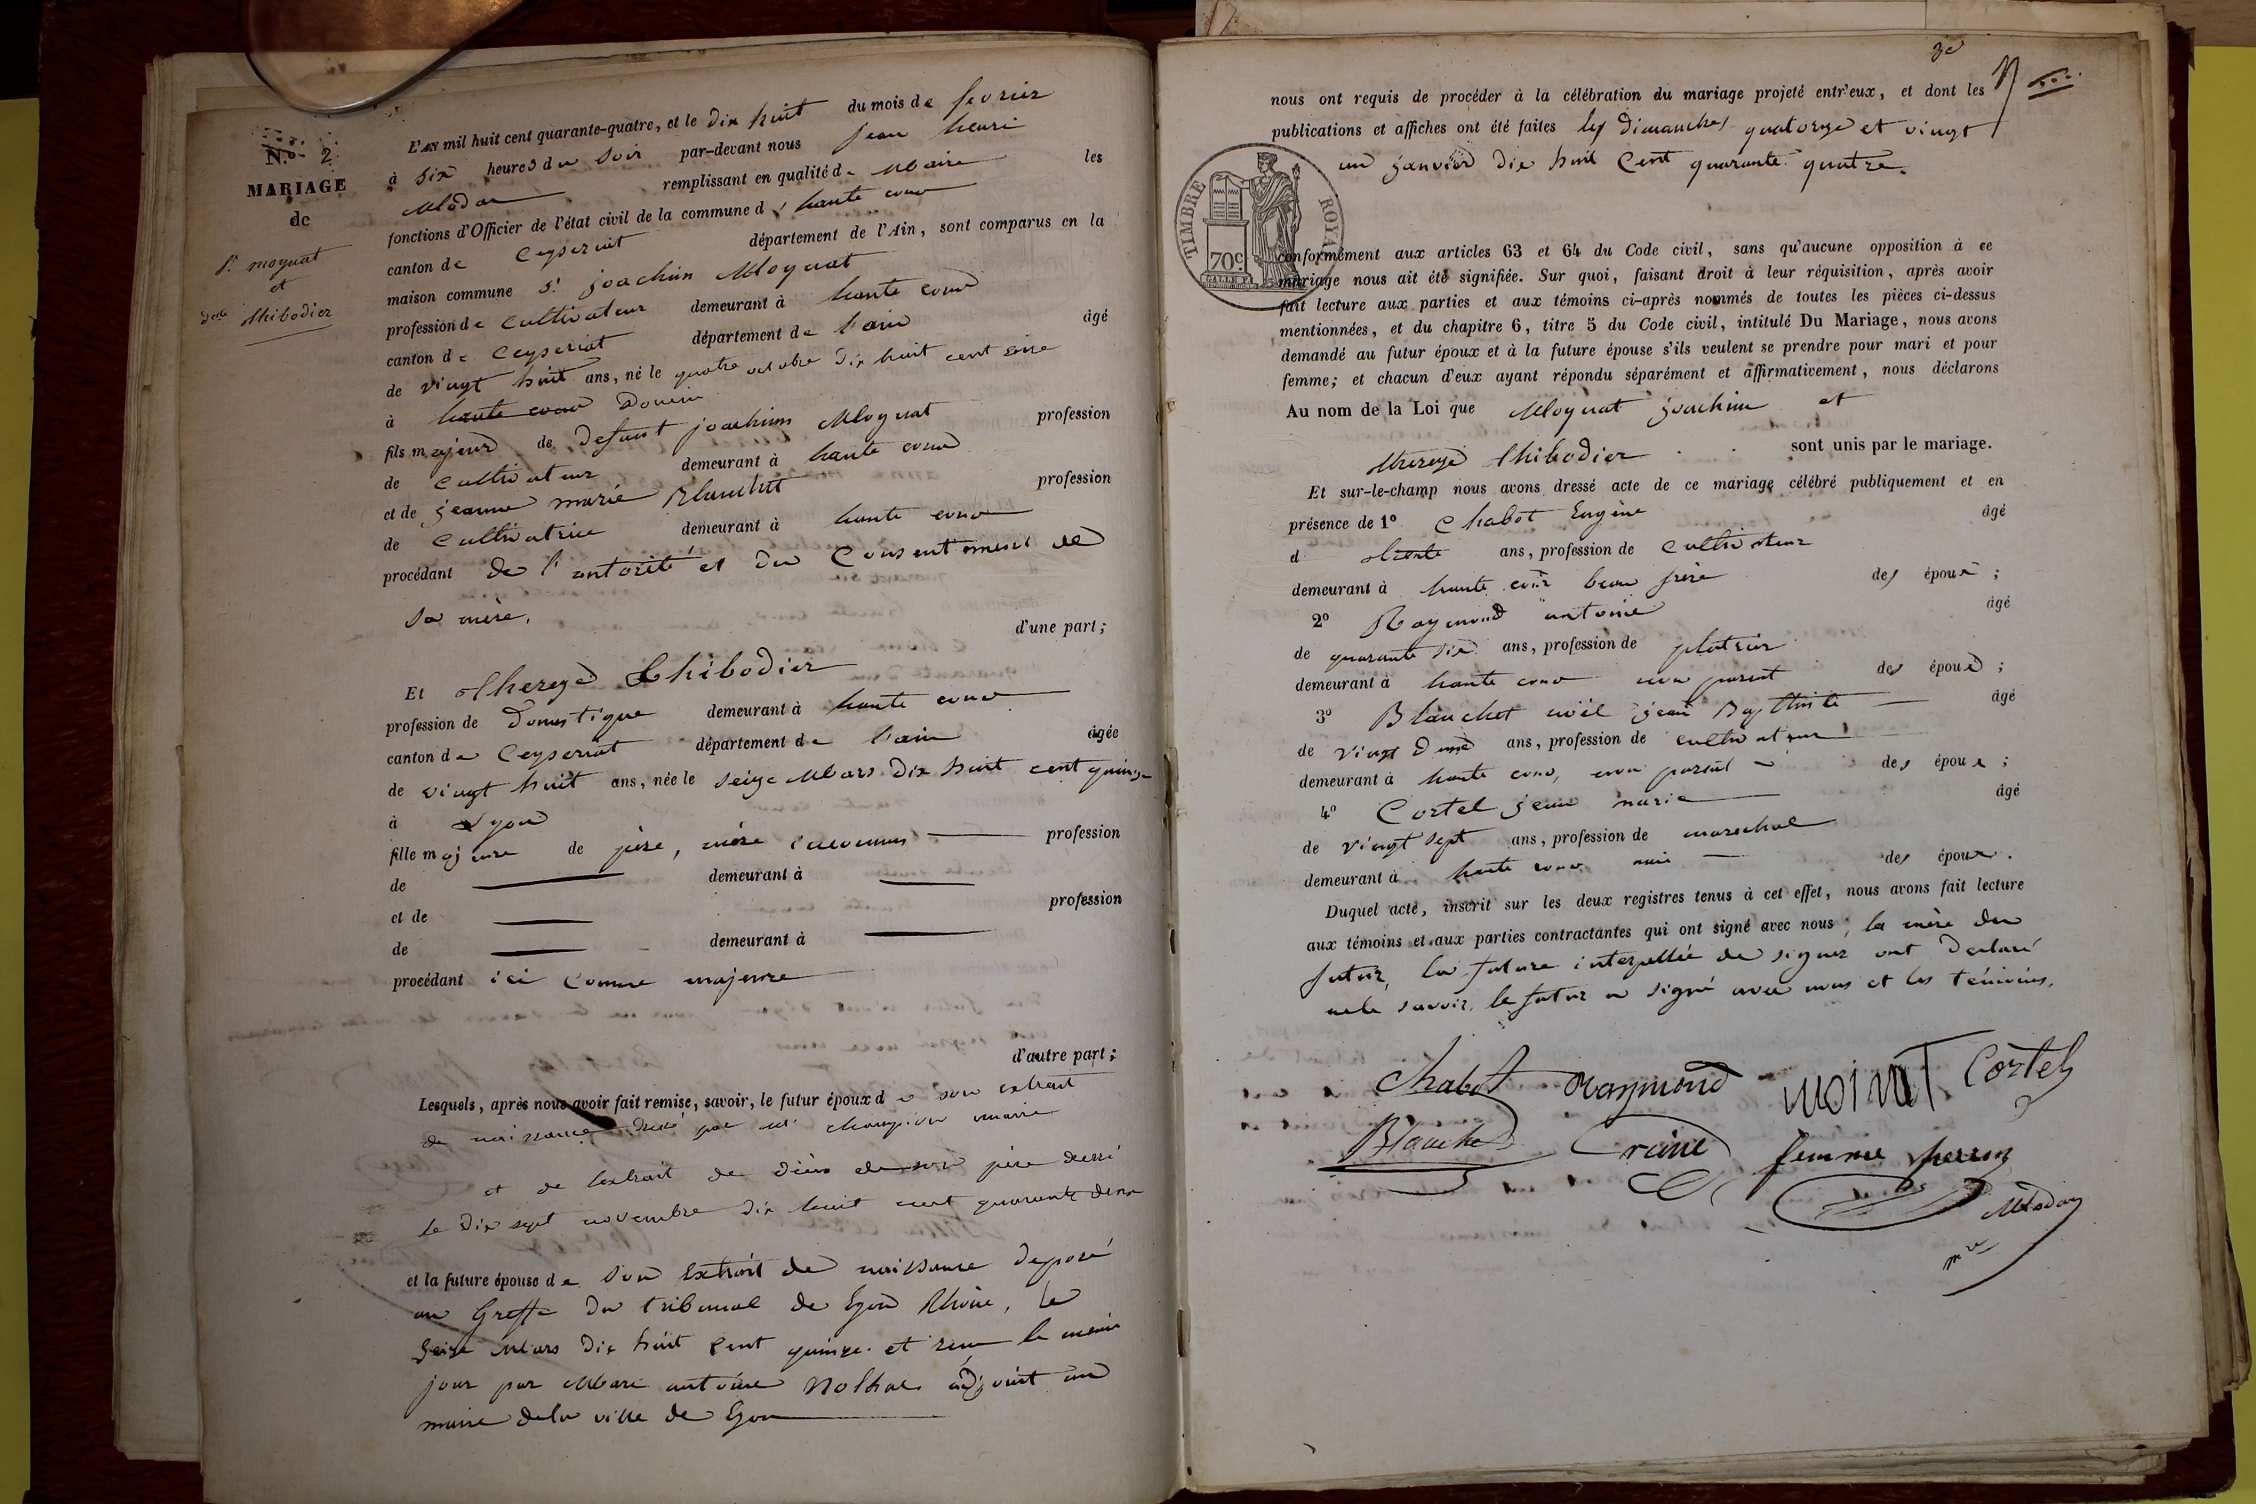 N.o 2
MARIAGE
de
Sr moynat
et
Dlle thibodier
L'AN mil huit cent quarante-quatre, et le dix huit du mois de fevrier
à six heures du soir par-devant nous jean henri
remplissant en qualité de Maire les
fonctions d'Officier de l'état civil de la commune d haute cour
canton de Ceyseriat département de l'Ain, sont comparus en la
maison commune Sr joachim Moynat
profession de cultivateur demeurant à haute cour
canton de Ceyseriat département de l'ain âgé
de vingt huit ans, né le quatre octobre dix huit cent seize
à haute cour
fils majeur de defunt joachim Moynat profession
de cultivateur demeurant à haute cour
et de jeanne marie Blanchet profession
de cultivatrice demeurant à haute cour
procédant de l'autorité et du Consentement de
sa mère.
d'une part ;
Et thereze thibodier
profession de Domestique demeurant à haute cour
canton de Ceyseriat département de l'ain âgée
de vingt huit ans, née le seize Mars dix huit cent quinze
à Lyon
fille majeure de père, mère inconnus profession
de demeurant à
et de profession
de demeurant à
procédant ici comme majeure
d'autre part ;
Lesquels, après nous avoir fait remise, savoir, le futur époux de son extrait
de naissance par Mr champion maire
et de l'extrait de décès de son père
le dix sept novembre dix huit cent quarante deux
et la future épouse de son extrait de naissance deposé
au Greffe du tribunal de Lyon Rhône, le
seize Mars dix huit cent quinze et le même
jour par Marc antoine Nolhac adjoint au
maire de la ville de Lyon
nous ont requis de procéder à la célébration du mariage projeté entr'eux, et dont les
publications et affiches ont été faites les dimanches quatorze et vingt
un janvier dix huit cent quarante quatre.
TIMBRE ROYAL
70c
conformément aux articles 63 et 64 du Code civil, sans qu'aucune opposition à ce
mariage nous ait été signifiée. Sur quoi, faisant droit à leur réquisition, après avoir
fait lecture aux parties et aux témoins ci-après nommés de toutes les pièces ci-dessus
mentionnées, et du chapitre 6, titre 5 du Code civil, intitulé Du Mariage, nous avons
demandé au futur époux et à la future épouse s'ils veulent se prendre pour mari et pour
femme ; et chacun d'eux ayant répondu séparément et affirmativement, nous déclarons
Au nom de la Loi que Moynat joachim et
thereze thibodier sont unis par le mariage.
Et sur-le-champ nous avons dressé acte de ce mariage célébré publiquement et en
présence de 1º Chabot Eugène âgé
d trente ans, profession de cultivateur
demeurant à haute cour beau frère des époux ;
2º Raymond antoine âgé
de quarante six ans, profession de platrier
demeurant à haute cour non parent des époux ;
3º Blanchet noël jean Baptiste âgé
de vingt deux ans, profession de cultivateur
demeurant à haute cour, non parent des époux ;
4º Cortel jean marie âgé
de vingt sept ans, profession de marechal
demeurant à haute cour ami des époux.
Duquel acte, inscrit sur les deux registres tenus à cet effet, nous avons fait lecture
aux témoins et aux parties contractantes qui ont signé avec nous ; la mère du
futur, la future interpellée de signer ont declaré
ne le savoir. le futur a signé avec nous et les témoins.
Chabot Raymond moinat Cortel
Blanchet femme perron